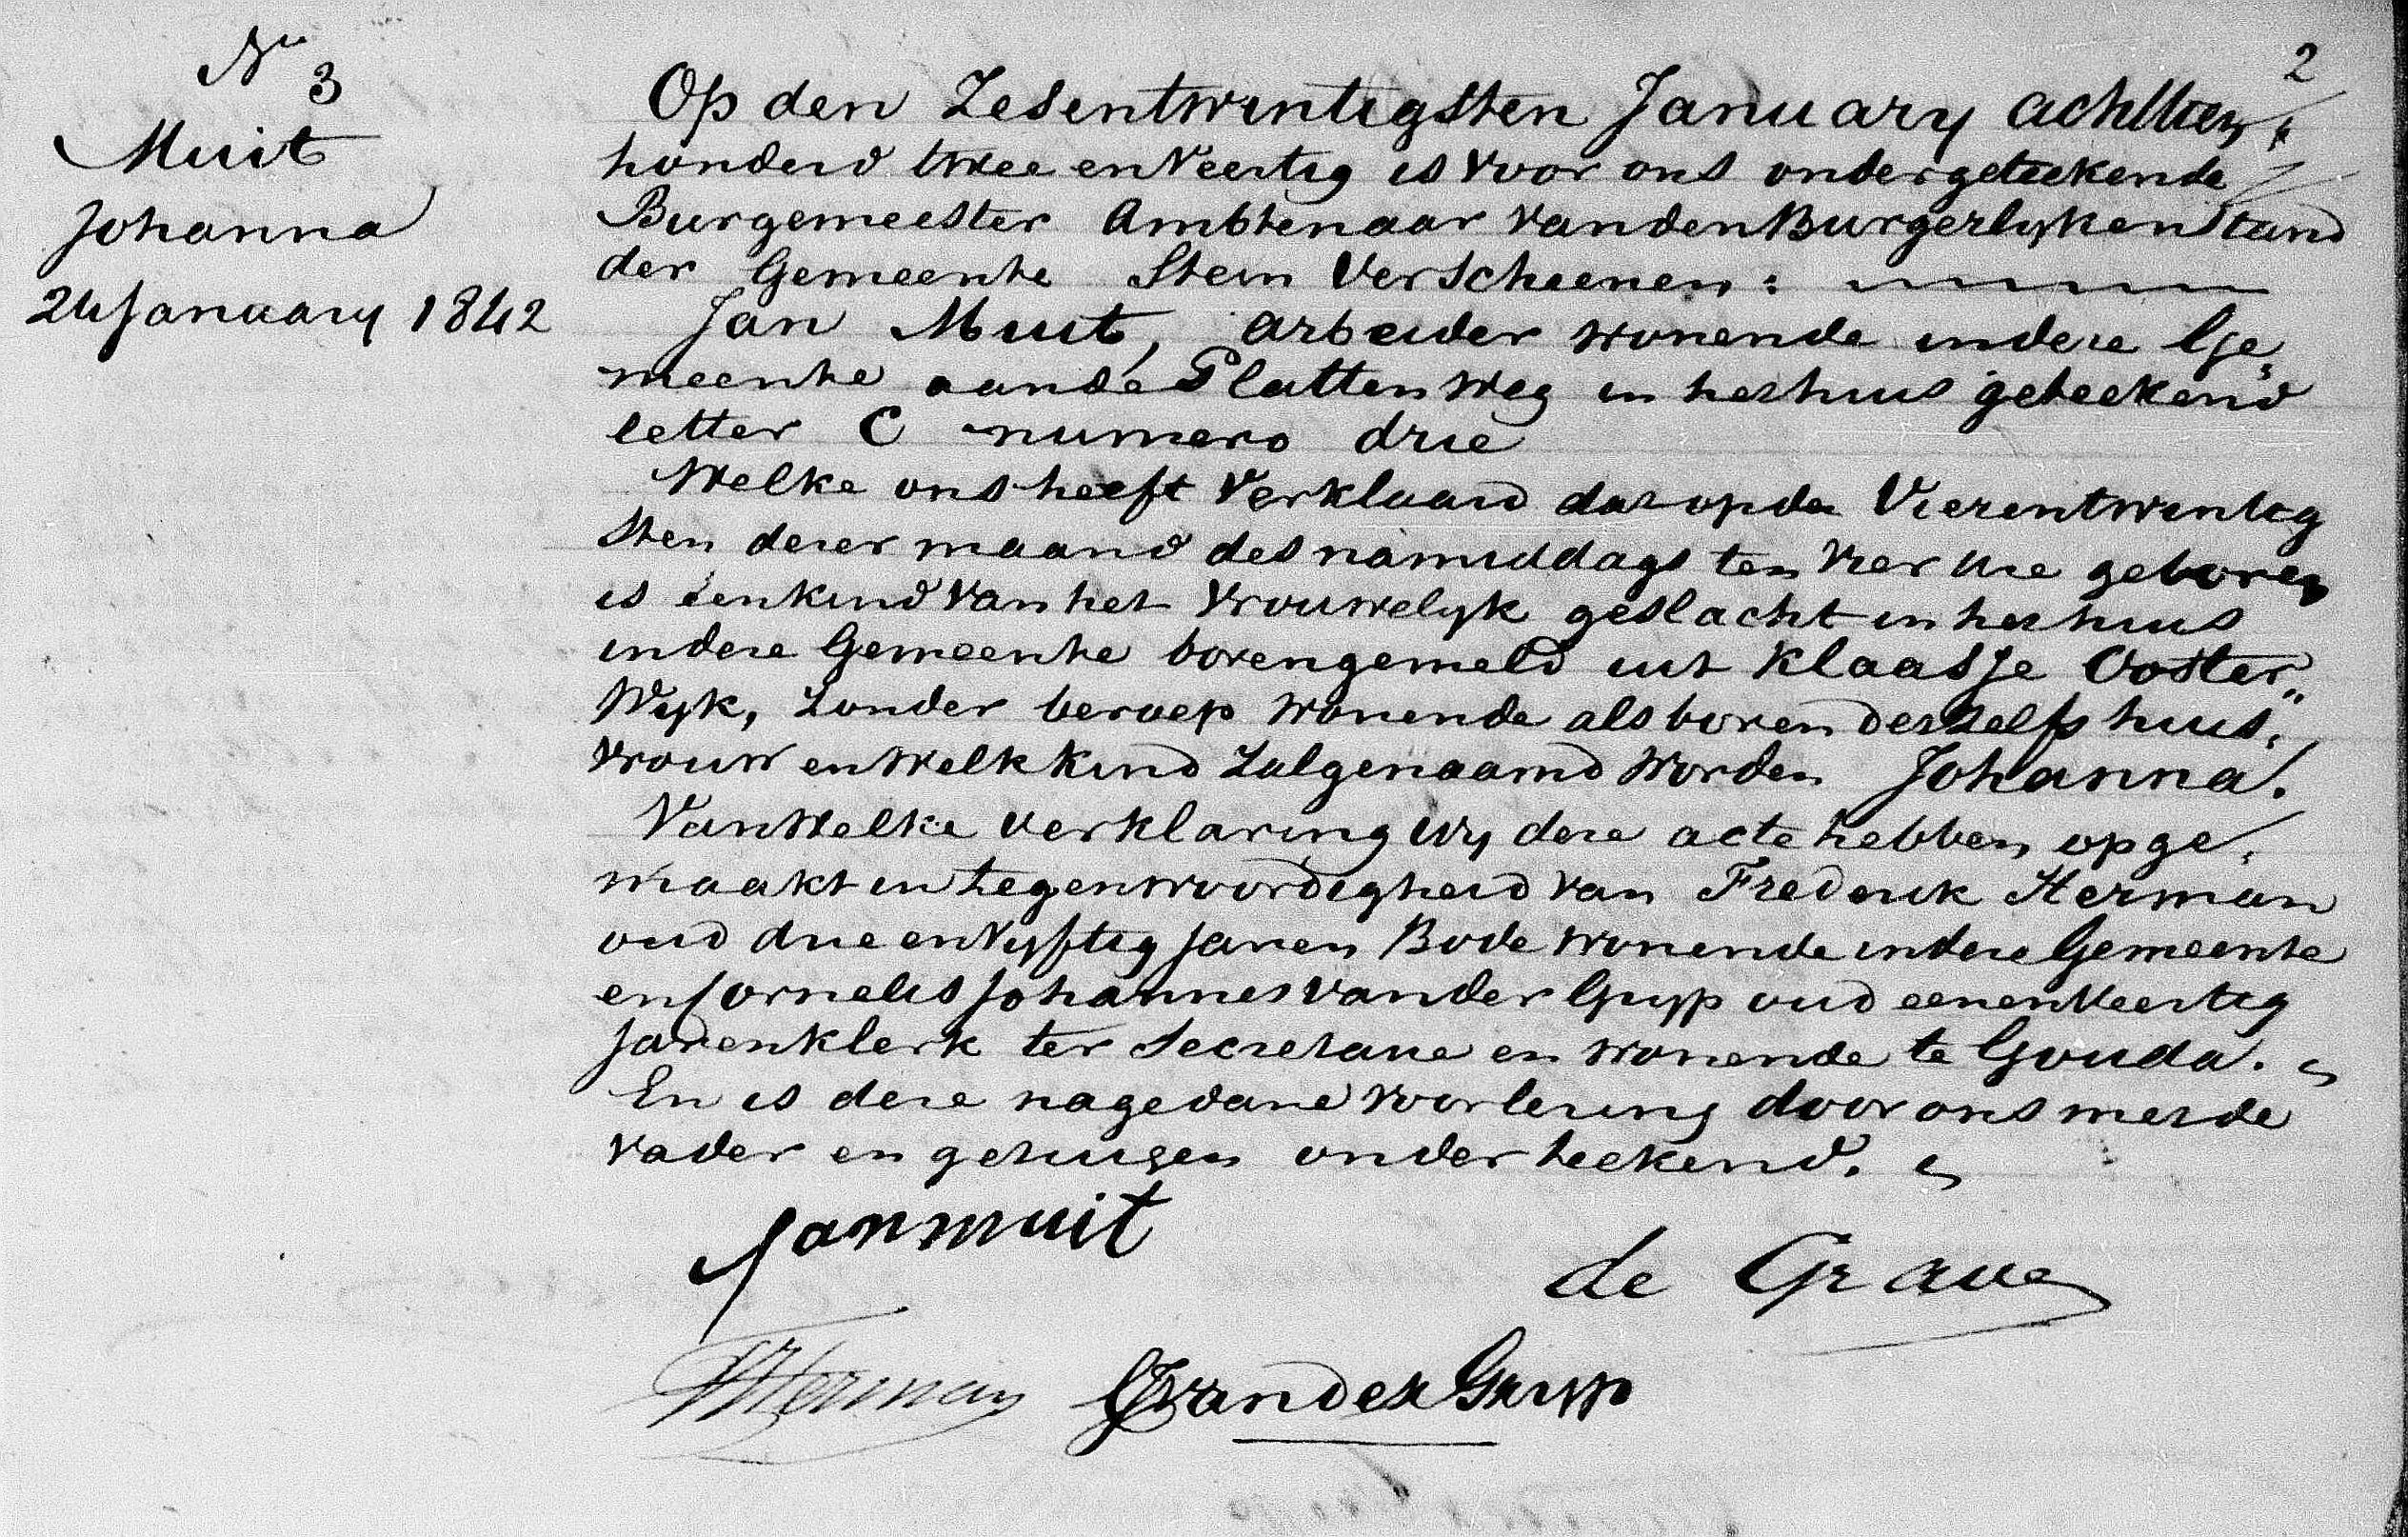 2
No 3
Muit
Johanna
24 January 1842
Op den Zesentwintigsten January achttien„
honderd twee en Veertig is Voor ons ondergeteekende
Burgemeester Ambtenaar van den Burgerlyken Stand
der Gemeente Stein Verscheenen:
Jan Muit, arbeider wonende in deze Ge„
meente aan de Platten Weg in het huis geteekend
letter C numero drie
Welke ons heeft Verklaard dat op den Vierentwintig
sten dezer maand des namiddags ten Vier ure geboren
is een kind van het Vrouwelyk geslacht in het huis
in deze Gemeente bovengemeld uit Klaasje Ooster„
Wyk, Zonder beroep wonende als boven deszelfs huis„
Vrouw en Welk Kind Zal genaamd Worden Johanna.
Van Welke Verklaring Wy deze acte hebben opge„
maakt in tegenwoordigheid van Frederik Herman
oud drie en Vyftig jaren Bode Wonende in deze Gemeente
en Cornelis Johannes van der Gryp oud een en Veertig
Jaren klerk ter Secretarie en wonende te Gouda.
En is deze na gedane Voorlezing door ons met de
Vader en getuigen onderteekend.
Jan muit
de Grave
FHerman CJvander Gryp